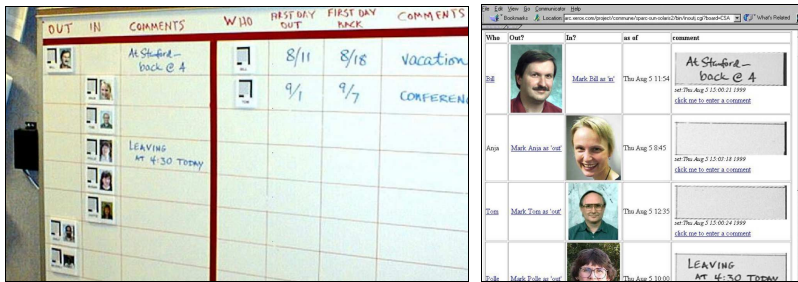 OUT IN COMMENTS
WHO FIRST DAY OUT FIRST DAY BACK COMMENTS
At Stanford—
back @ 4
8/11 8/18 vacation
9/1 9/7 CONFEREN
LEAVING
AT 4:30 TODAY
File Edit View Go Communicator Help
Bookmarks Location arc.xerox.com/project/commune/sparc-sun-solaris2/bin/inout.cgi?board=CSA What's Related
Who Out? In? as of comment
Bill Mark Bill as 'in' Thu Aug 5 11:54
At Stanford—
back @ 4
set:Thu Aug 5 15:00:21 1999
click me to enter a comment
Anja Mark Anja as 'out' Thu Aug 5 8:45
set:Thu Aug 5 15:03:18 1999
click me to enter a comment
Tom Mark Tom as 'out' Thu Aug 5 12:35
set:Thu Aug 5 15:00:24 1999
click me to enter a comment
Polle Mark Polle as 'out' Thu Aug 5 10:00
LEAVING
AT 4:30 TODAY